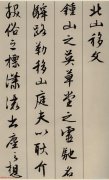 北山移文
鍾山之英草堂之靈馳烟
驛路勒移山庭夫以耿介
拔俗之標瀟洒出塵之想